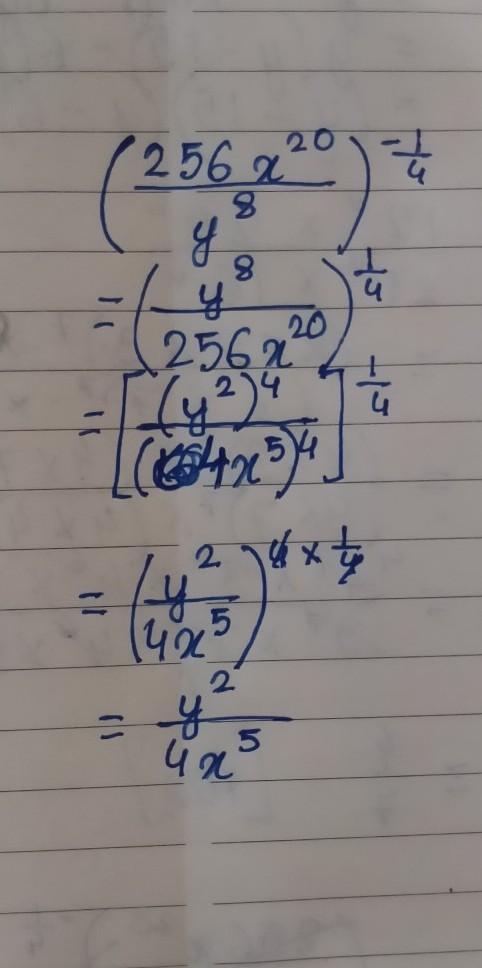 (256 x^20 / y^8)^-1/4
= (y^8 / 256 x^20)^1/4
= [(y^2)^4 / (4x^5)^4]^1/4
= (y^2 / 4x^5)^4 × 1/4
= y^2 / 4x^5